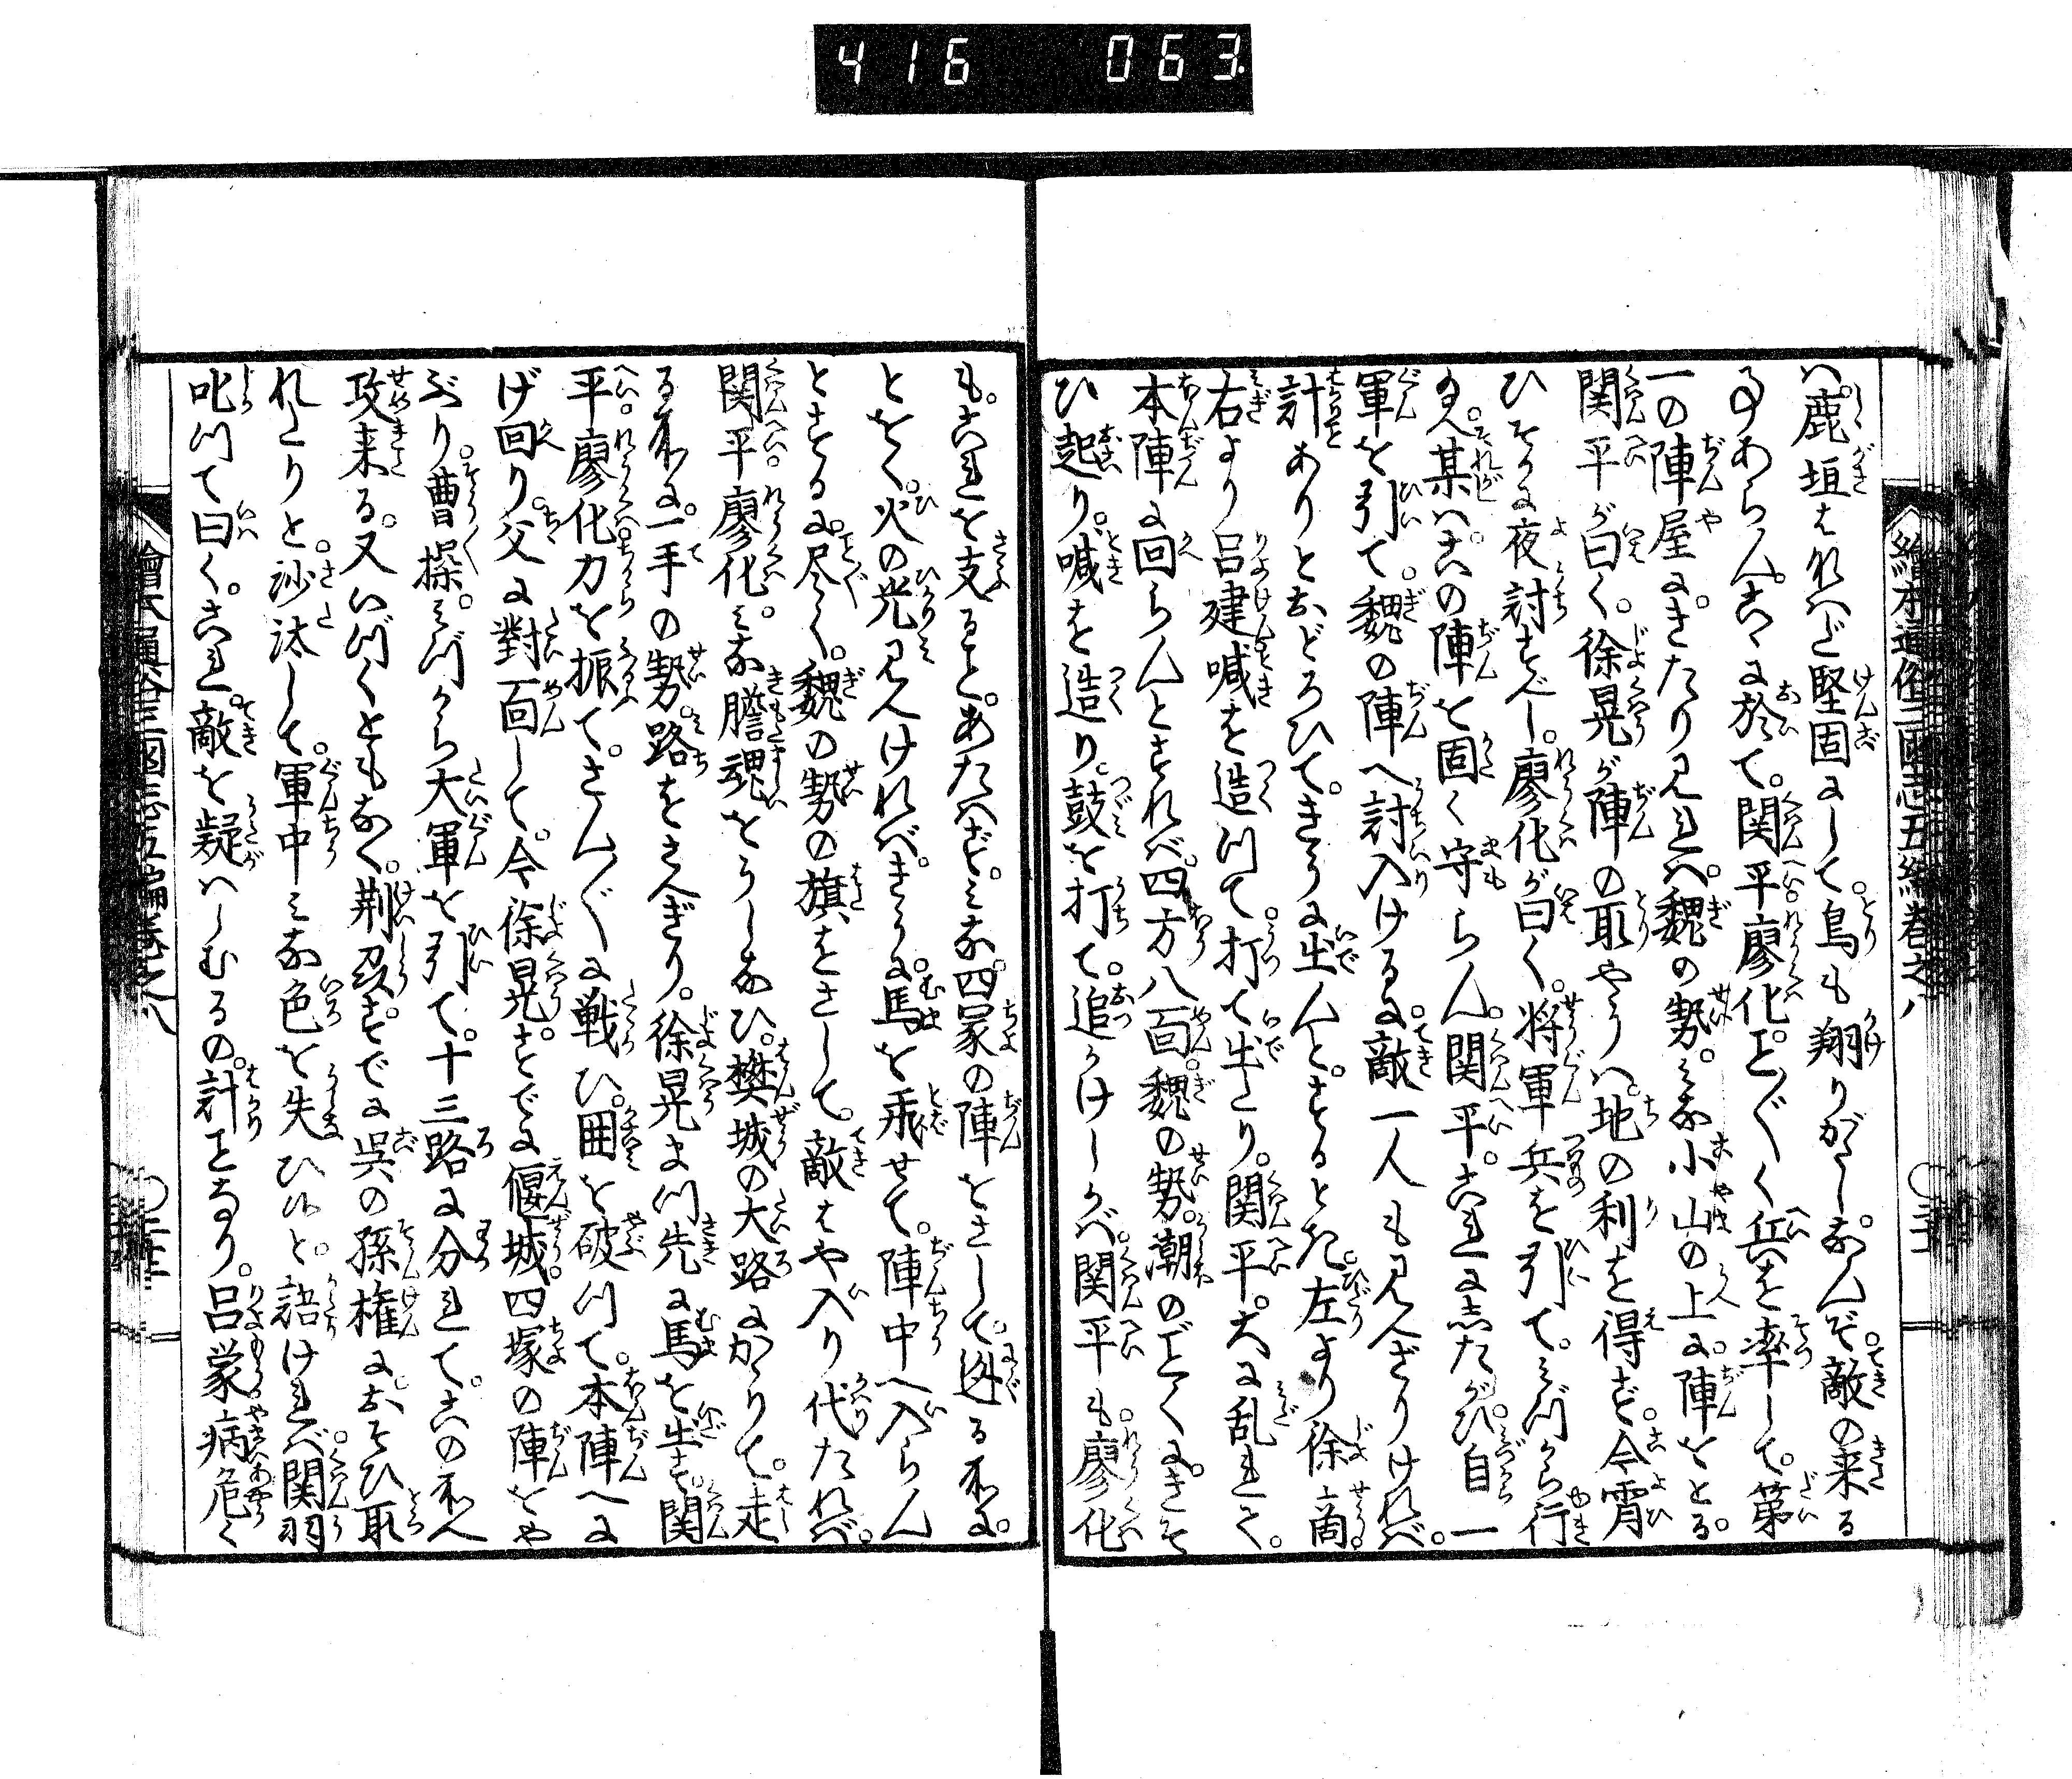 416 063
繪本通俗三國志五編巻之八
ハ鹿垣をれバ堅固にして。鳥も翔りがたし。なんぞ。敵の来る
事あらん。こゝに於て。関平廖化。こと〴〵く兵を率して。第
一の陣屋に。きたり見れバ。魏の勢。みな小山の上に。陣をとる。
関平が曰く。徐晃が陣の取やうハ。地の利を得ず。今宵
ひそかに夜討すべし。廖化が曰く。将軍兵を引て。みづから行
たまへ。某ハ。この陣を固く守らん。関平。これにしたがひ。自一
軍を引て。魏の陣へ討入けるに。敵一人も見えざりけれバ。
計ありとおどろひて。きうに出んと。するとき。左より徐商
右より呂建喊を造つて。打て出たり。関平。大に乱れて。
本陣に回らんとすれバ。四方八面。魏の勢。潮のごとくに。きそ
ひ起り。喊を造り。鼓を打て。追かけしかバ。関平も。廖化
も。これを支ること。あたハず。みな。四冢の陣をさして。逃る所に。
とをく。火の光見えけれバ。きうに。馬を乗せて。陣中へ入らん
とするに。尽く。魏の勢の旗をさして。敵はや入り代たれバ。
関平。廖化。みな膽魂をうしなひ。樊城の大路にかゝりて。走
る所に。一手の勢。路をさへぎり。徐晃まつ先に馬を出す。関
平。廖化力を振て。さん〴〵に戦ひ。囲を破つて。本陣へに
げ回り。父に對面して。今徐晃。すでに偃城。四塚の陣をや
ぶり。曹操。みづから大軍を引て。十三路に分れて。この所へ
攻来る。又いづくともなく。荆刕。すでに呉の孫権に。おそひ取
れたりと。沙汰して。軍中みな色を失ひ候と。語けれバ。関羽
叱つて曰く。これ。敵を疑ハしむるの。計ことなり。呂蒙病危く
繪本通俗三國志五編巻之八